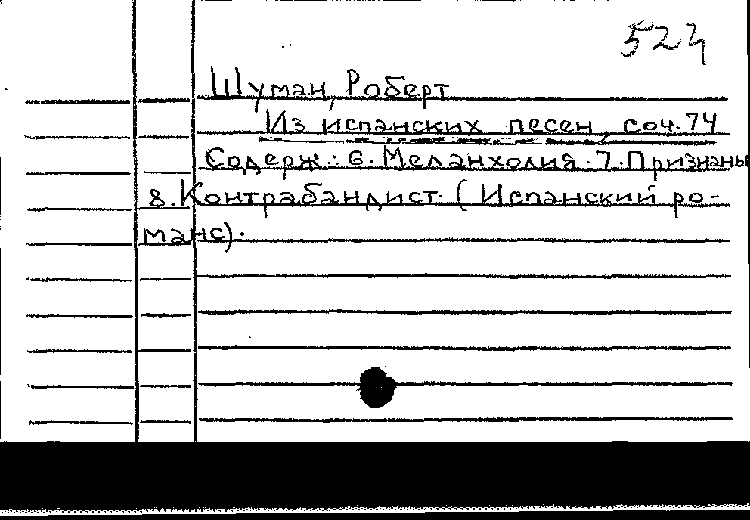 524
Шуман, Роберт
Из испанских песен, соч. 74
Содерж.: 6. Меланхолия. 7. Признанье
8. Контрабандист. (Испанский ро-
манс).